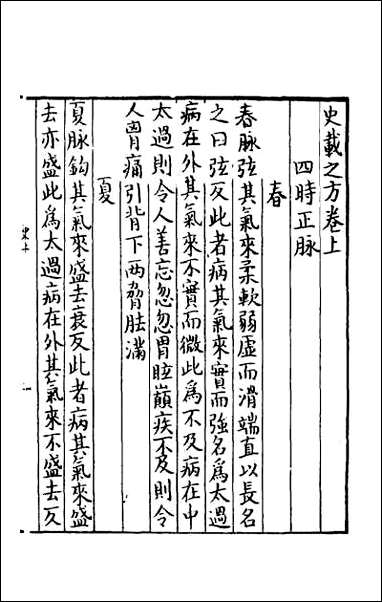 史載之方卷上
四時正脉
春
春脉弦其氣來柔軟弱虛而滑端直以長名
之曰弦反此者病其氣來實而強名為太過
病在外其氣來不實而微此為不及病在中
太過則令人善忘忽忽冒眩巔疾不及則令
人胷痛引背下两脅胠滿
夏
夏脉鈎其氣來盛去衰反此者病其氣來盛
去亦盛此為太過病在外其氣來不盛去反
史上
一